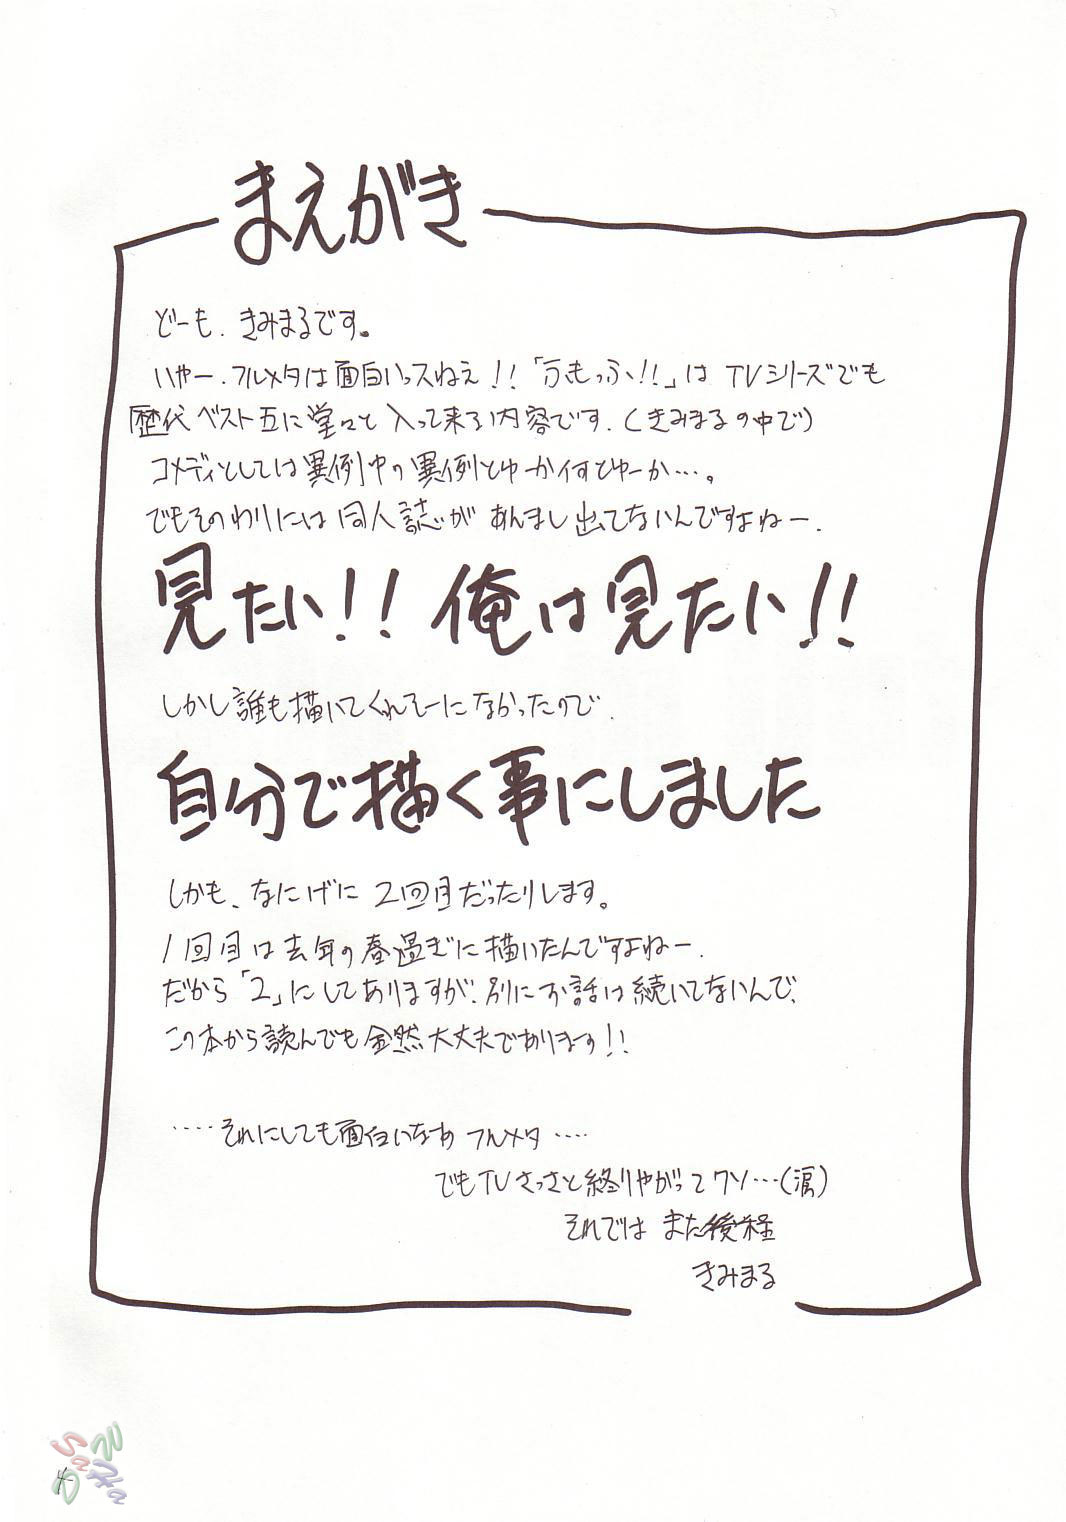 まえがき
どーも、きみまるです。
いやー、フルメタは面白いっスねえ!!「ふもっふ!!」は TVシリーズでも
歴代ベスト五に堂々と入って来る内容です、(きみまるの中で)
コメディとしては異例中の異例とゆーかイすとゆーか…。
でもそのわりには同人誌があんまし出てないんですよねー、
見たい!!俺は見たい!!
しかし誰も描いてくれそーになかったので、
自分で描く事にしました
しかも、なにげに2回目だったりします。
1回目は去年の春過ぎに描いたんですよねー、
だから「2」にしてありますが、別にお話は続いてないんで、
この本から読んでも全然大丈夫であります!!
‥‥それにしても面白いなあ フルメタ‥‥
でもTVさっさと終りやがってクソ…(涙)
それでは また後程
きみまる